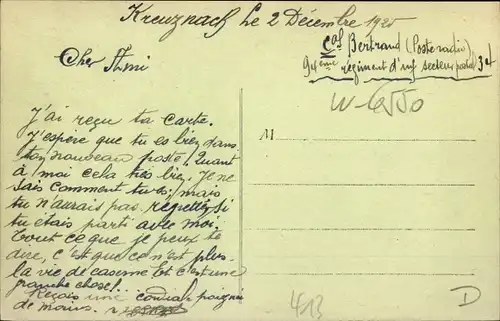 Kreuznach le 2 Décembre 1920
Cal Bertrand (Poste radio)
94ème régiment d'inf secteur postal 3
Cher Ami
W-6550
J'ai reçu ta carte.
J'espère que tu es bien dans
ton nouveau poste! Quant
à moi cela très bien. Je ne
sais comment tu es; mais
tu n'aurais pas regretté si
tu étais parti avec moi.
Tout ce que je peux te
dire, c'est que ce n'est plus
la vie de caserne et c'est une
franche chose!..
Reçois une cordiale poignée
de mains.
M
413
D